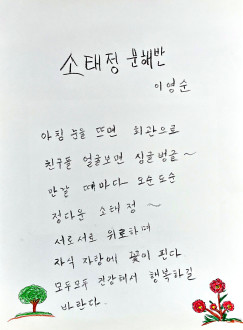 소태정 문해반
이영순
아침 눈을 뜨면 회관으로
친구들 얼굴보면 싱글벙글~
만날 때마다 오순도순
정다운 소태정~
서로서로 위로하며
자식 자랑에 꽃이 핀다
모두모두 건강해서 행복하길
바란다.